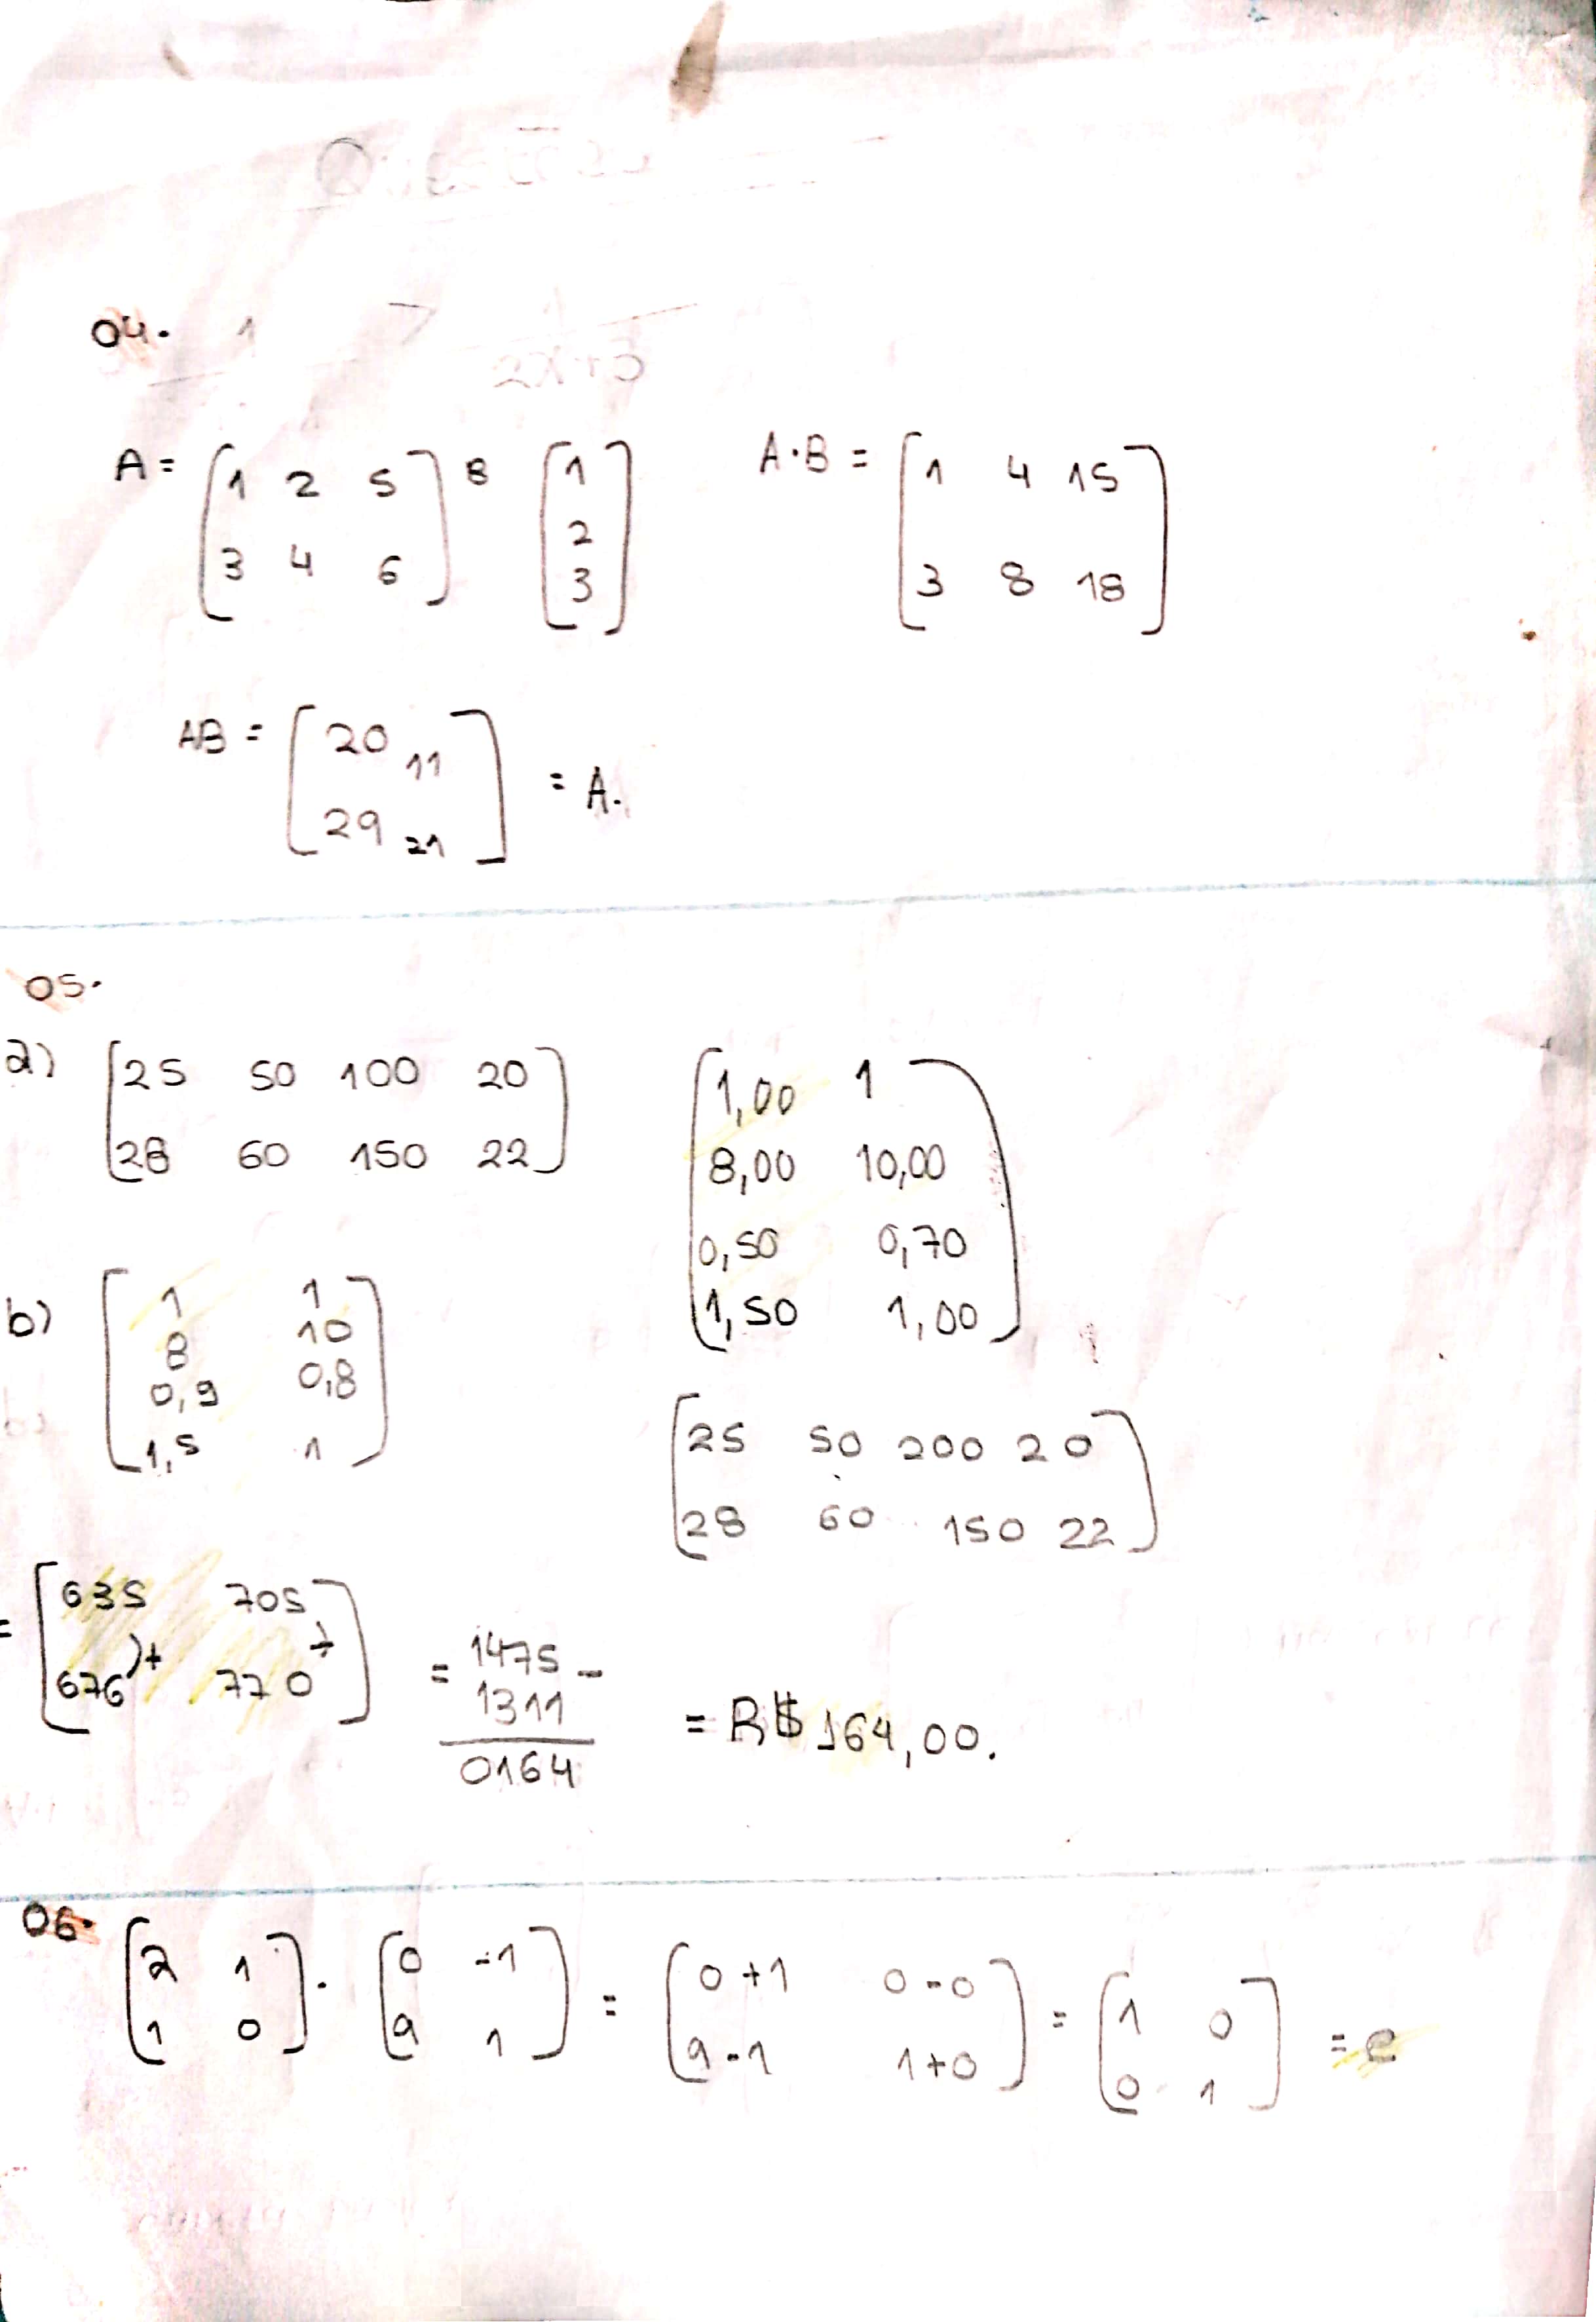 04. 1
A = [1 2 5 B [1 A·B = [1 4 15
3 4 6] 2 3 8 18]
3]
AB = [20 11
29 21] = A.
05.
a) [25 50 100 20 [1,00 1
28 60 150 22] 8,00 10,00
0,50 0,70
1,50 1,00]
b) [1 1
8 10
0,9 0,8
1,5 1]
[25 50 200 20
28 60 150 22]
= [635 705
676 )+ 770 +] = 1475 -
1311
0164
= R$ 164,00.
06. [2 1 · [0 -1 = [0+1 0-0 = [1 0 = e
1 0] a 1] a-1 1+0] 0 1]